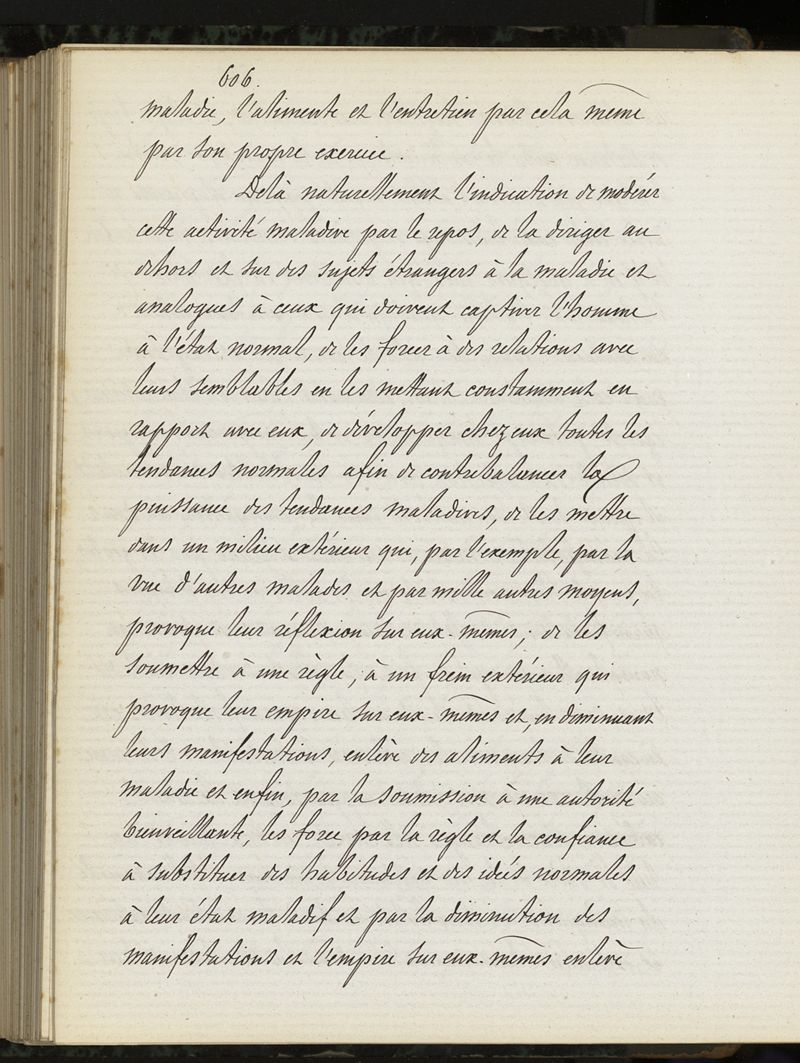 606.
maladie, l'alimente et l'entretien par cela même
par son propre exercice.
Delà naturellement l'indication de modérer
cette activité maladive par le repos, de la diriger au
dehors et sur des sujets étrangers à la maladie et
analogues à ceux qui doivent captiver l'homme
à l'état normal, de les forcer à des relations avec
leurs semblables en les mettant constamment en
rapport avec eux, de développer chez eux toutes les
tendances normales afin de contrebalancer la
puissance des tendances maladives, de les mettre
dans un milieu extérieur qui, par l'exemple, par la
vue d'autres malades et par mille autres moyens,
provoque leur réflexion sur eux-mêmes; de les
soumettre à une règle, à un frein extérieur qui
provoque leur empire sur eux-mêmes et, en diminuant
leurs manifestations, enlève des aliments à leur
maladie et enfin, par la soumission à une autorité
bienveillante, les force par la règle et la confiance
à substituer des habitudes et des idées normales
à leur état maladif et par la diminution des
manifestations et l'empire sur eux-mêmes enlève